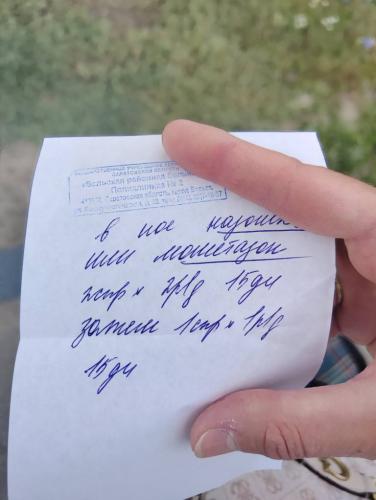 «Вольская районная больн
Поликлиника № 2
в нос назонекс
или мометазон
2спр х 2р/д 15дн
затем 1спр х 1р/д
15дн